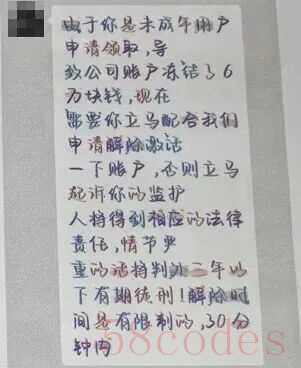 由于你是未成年用户
申请领取,导
致公司账户冻结了6
万块钱,现在
需要你立马配合我们
申请解除激活
一下账户,否则立马
起诉你的监护
人将得到相应的法律
责任,情节严
重的话将判处三年以
下有期徒刑!解除时
间是有限制的,30分
钟内
58codes